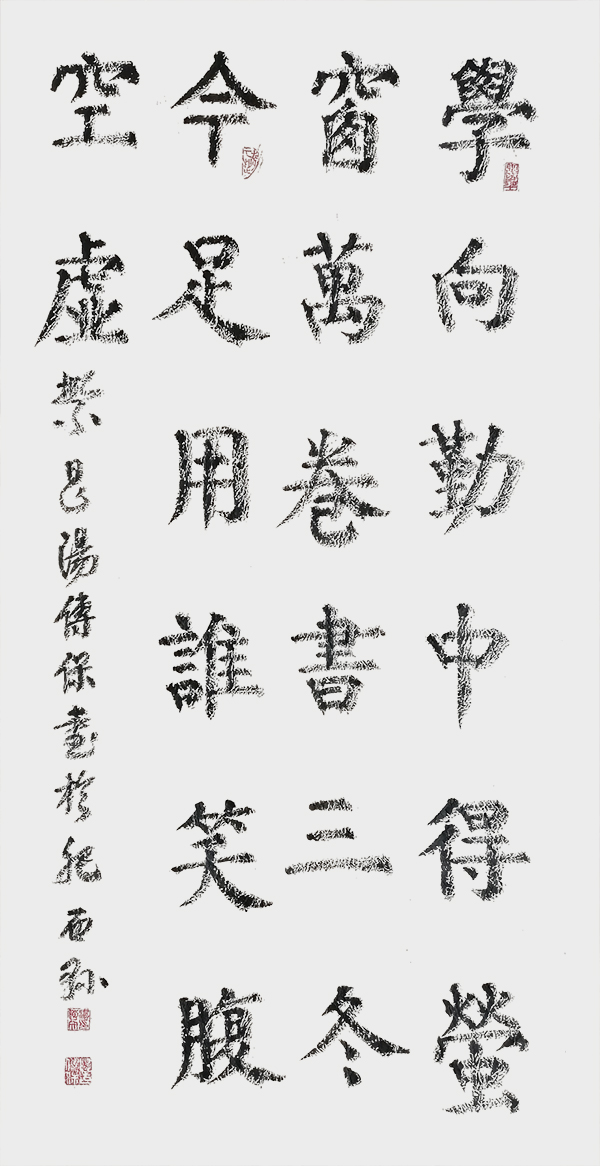 學向勤中得螢
窗萬卷書三冬
今足用誰笑腹
空虛 榮昌湯傳保書於肥西